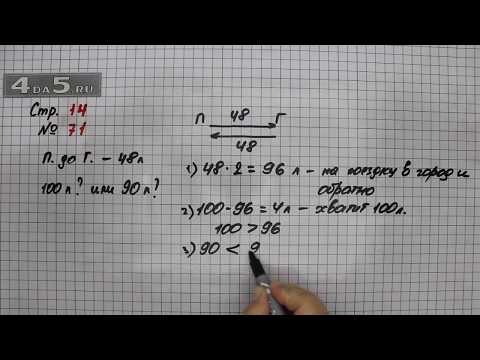 4DA5.RU
Стр. 14
№ 71
П. до Г. – 48л
100л? или 90л?
П 48 Г
48
1) 48 · 2 = 96 л – на поездку в город и
обратно
2) 100 - 96 = 4л – хватит 100л.
100 > 96
3) 90 < 9